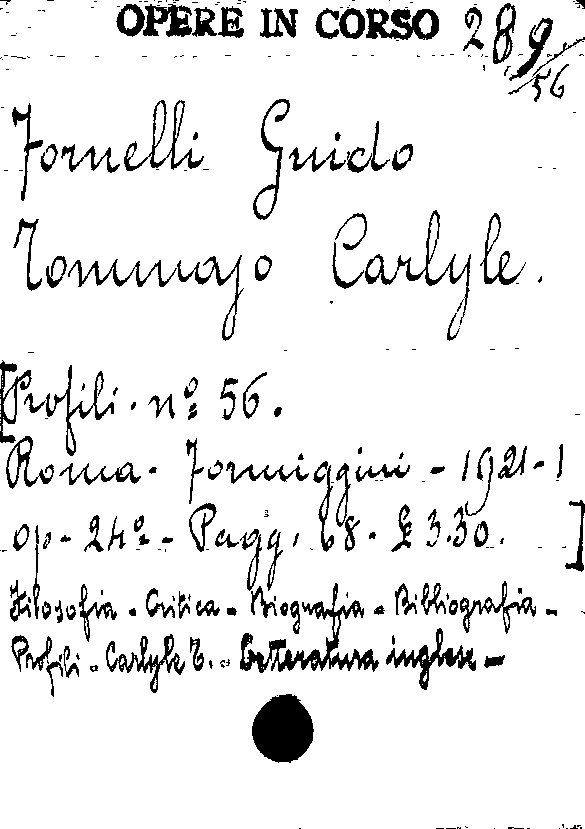 OPERE IN CORSO 289/56
Fornelli Guido
Tommaso Carlyle.
[Profili. nº 56.
Roma - Formiggini - 1921 - 1
op - 24º - Pagg. 68. £ 3.30. ]
Filosofia - Critica - Biografia - Bibliografia -
Profili - Carlyle T. - Letteratura inglese -